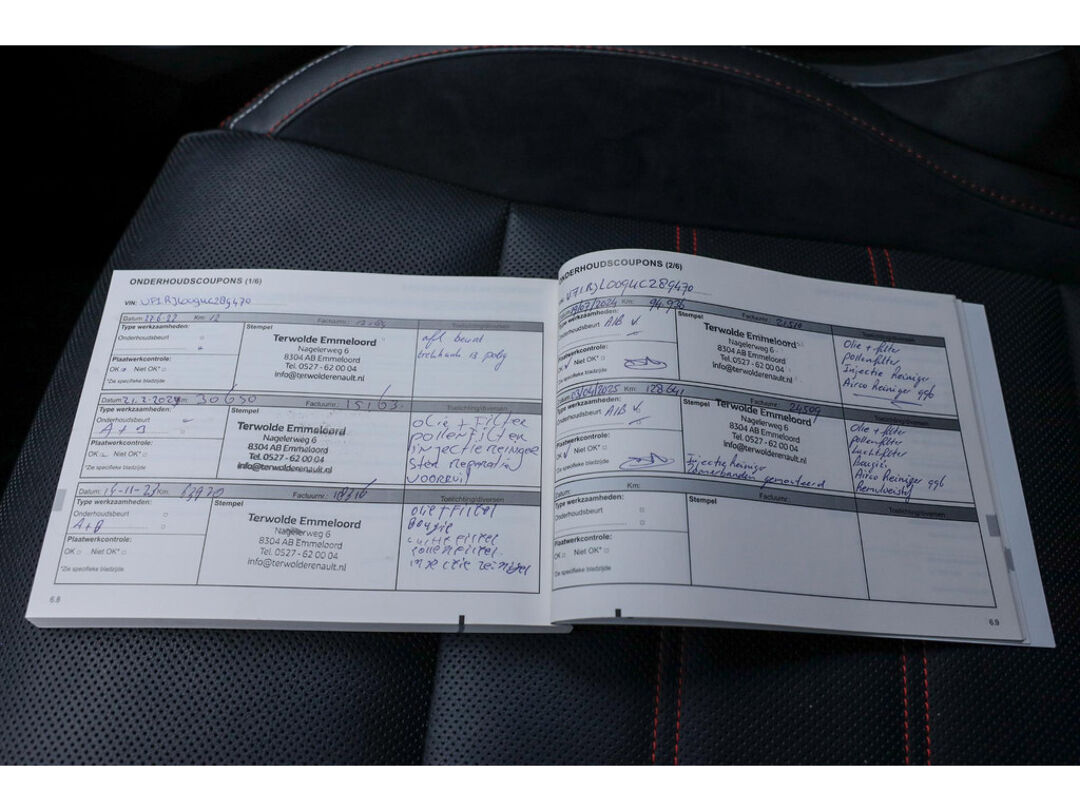 ONDERHOUDSCOUPONS (1/6)
VIN:
Datum 27-6-22 Km: 12
Factuurnr.:
Type werkzaamheden:
Stempel
Toelichting/diversen
Onderhoudsbeurt
Plaatwerkcontrole:
OK Niet OK*
*Zie specifieke bladzijde
Terwolde Emmeloord
Nagelerweg 6
8304 AB Emmeloord
Tel. 0527 - 62 00 04
info@terwolderenault.nl
afl beurt
trekhaak is
Datum: Km:
Factuurnr.:
Type werkzaamheden:
Stempel
Toelichting/diversen
Onderhoudsbeurt
A + B
Plaatwerkcontrole:
OK Niet OK*
*Zie specifieke bladzijde
Terwolde Emmeloord
Nagelerweg 6
8304 AB Emmeloord
Tel. 0527 - 62 00 04
info@terwolderenault.nl
olie + Filter
pollenfilter
injectie reiniger
Ster reparatie
VOORRUIT
Datum: 14-11-23 Km:
Factuurnr.:
Type werkzaamheden:
Stempel
Toelichting/diversen
Onderhoudsbeurt
A+B
Plaatwerkcontrole:
OK Niet OK*
*Zie specifieke bladzijde
Terwolde Emmeloord
Nagelerweg 6
8304 AB Emmeloord
Tel. 0527 - 62 00 04
info@terwolderenault.nl
olie + Filter
Bougie
injectie reiniger
6.8
ONDERHOUDSCOUPONS (2/6)
Datum: 19/07/2024 Km: 94.936
Factuurnr.: 21510
Type werkzaamheden:
Stempel
Toelichting/diversen
Onderhoudsbeurt A/B
Plaatwerkcontrole:
OK Niet OK*
*Zie specifieke bladzijde
Terwolde Emmeloord
Nagelerweg 6
8304 AB Emmeloord
Tel. 0527 - 62 00 04
info@terwolderenault.nl
Olie + filter
pollenfilter
Injectie Reiniger
Airco Reiniger 996
Datum: 03/04/2025 Km: 128.641
Factuurnr.: 24509
Type werkzaamheden:
Stempel
Toelichting/diversen
Onderhoudsbeurt A/B
Plaatwerkcontrole:
OK Niet OK*
*Zie specifieke bladzijde
Terwolde Emmeloord
Nagelerweg 6
8304 AB Emmeloord
Tel. 0527 - 62 00 04
info@terwolderenault.nl
Injectie Reiniger
Zomerbanden gemonteerd
Olie + filter
pollenfilter
Luchtfilter
Bougies
Airco Reiniger 996
Remvloeistof
Datum: Km:
Factuurnr.:
Type werkzaamheden:
Stempel
Toelichting/diversen
Onderhoudsbeurt
Plaatwerkcontrole:
OK Niet OK*
*Zie specifieke bladzijde
6.9